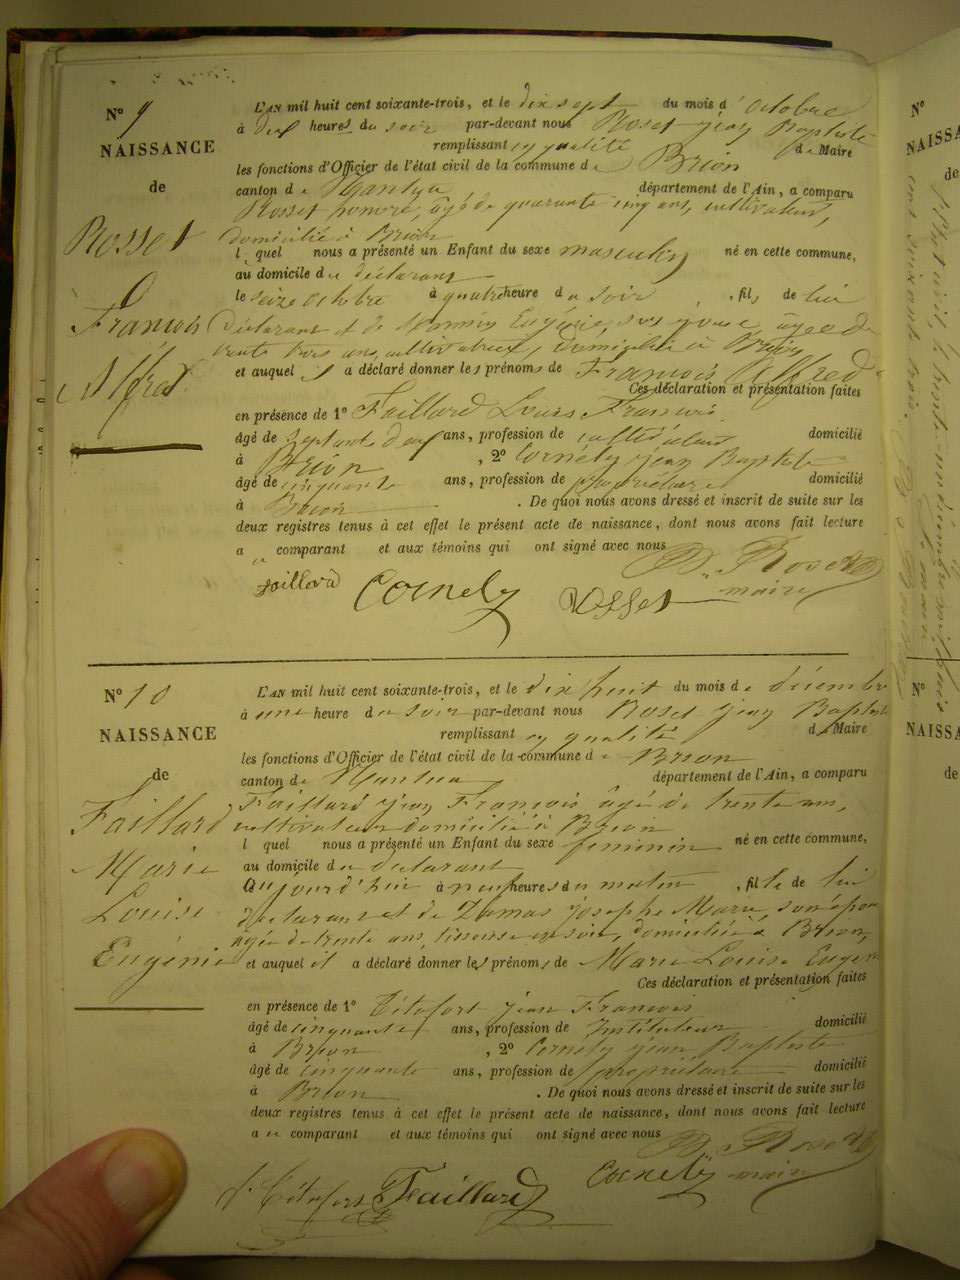 N° 9
NAISSANCE
de
Rosset
François
Alfred
L'AN mil huit cent soixante-trois, et le dix sept du mois d'octobre
à deux heures du soir par-devant nous Roset jean Baptiste
remplissant en qualité de Maire
les fonctions d'Officier de l'état civil de la commune de Brion
canton de Nantua département de l'Ain, a comparu
Rosset honoré, âgé de quarante cinq ans, cultivateur,
domicilié à Brion
l quel nous a présenté un Enfant du sexe masculin né en cette commune,
au domicile du déclarant
le seize octobre à quatre heure du soir, fils de lui
déclarant et de Eugénie, son épouse, âgée de
trente trois ans, cultivatrice, domiciliée à Brion
et auquel il a déclaré donner les prénoms de François Alfred
Ces déclaration et présentation faites
en présence de 1° Faillard Louis François
âgé de septante deux ans, profession de cultivateur domicilié
à Brion, 2° Cornély jean Baptiste
âgé de cinquante ans, profession de propriétaire domicilié
à Brion. De quoi nous avons dressé et inscrit de suite sur les
deux registres tenus à cet effet le présent acte de naissance, dont nous avons fait lecture
a comparant et aux témoins qui ont signé avec nous
B. Roset
faillard Cornely Rosset maire
N° 10
NAISSANCE
de
Faillard
Marie
Louise
Eugénie
L'AN mil huit cent soixante-trois, et le dix huit du mois de décembre
à une heure du soir par-devant nous Roset jean Baptiste
remplissant en qualité de Maire
les fonctions d'Officier de l'état civil de la commune de Brion
canton de Nantua département de l'Ain, a comparu
Faillard jean François âgé de trente ans,
cultivateur domicilié à Brion
l quel nous a présenté un Enfant du sexe féminin né en cette commune,
au domicile du déclarant
Aujourd'hui à neuf heures du matin, fille de lui
déclarant et de Damas josephe Marie, son épouse
âgée de trente ans, tisseuse en soie, domiciliée à Brion,
et auquel il a déclaré donner les prénoms de Marie Louise Eugénie
Ces déclaration et présentation faites
en présence de 1° Tétafort jean François
âgé de cinquante ans, profession de Instituteur domicilié
à Brion, 2° Cornély jean Baptiste
âgé de cinquante ans, profession de propriétaire domicilié
à Brion. De quoi nous avons dressé et inscrit de suite sur les
deux registres tenus à cet effet le présent acte de naissance, dont nous avons fait lecture
au comparant et aux témoins qui ont signé avec nous
B. Roset
Tétafort Faillard Cornely maire
N°
NAISSA
de
N°
NAISSA
de